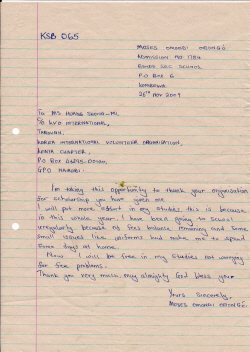 KSB 065
MOSES OMONDI OBONGO
ADMISSION NO 1784
SEC SCHOOL
P.O BOX 6
26th NOV 2009
TO MS
TO KVO INTERNATIONAL,
THROUGH,
KOREA INTERNATIONAL VOLUNTEER ORGANISATION,
KENYA CHAPTER,
P.O BOX
GPO NAIROBI.
I'm taking this opportunity to thank your organisation
for scholarship you have given me.
I will put more effort in my studies this is because
in this whole year, I have been going to school
irregularly because of fees balance remaining and some
small issues like uniforms had make me to spend
some days at home.
Now I will be free in my studies not worrying
for fee problems.
Thank you very much may almighty God bless you.
Yours Sincerely,
MOSES OMONDI OBONGO.